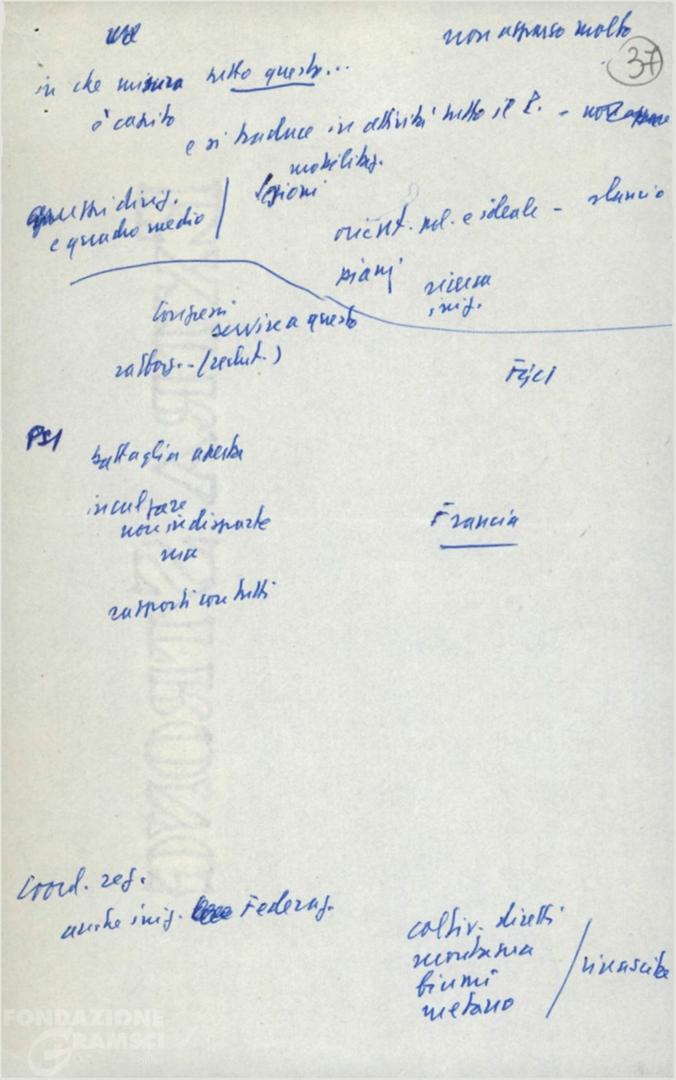 non apparso molto
37
in che misura tutto questo...
è capito
e si traduce in attività tutto il P. -
mobilitaz.
gruppi dirig. / Sezioni
e quadro medio
orient. pol. e ideale - slancio
piani
ricerca
iniz.
Congressi
servire a questo
rafforz. - (reclut.)
FGCI
PSI
battaglia aperta
incalzare
non in disparte
ma
rapporti con tutti
Francia
Coord. reg.
anche iniz. Federaz.
coltiv. diretti
montagna
fiumi
metano
/ rinascita
FONDAZIONE
GRAMSCI